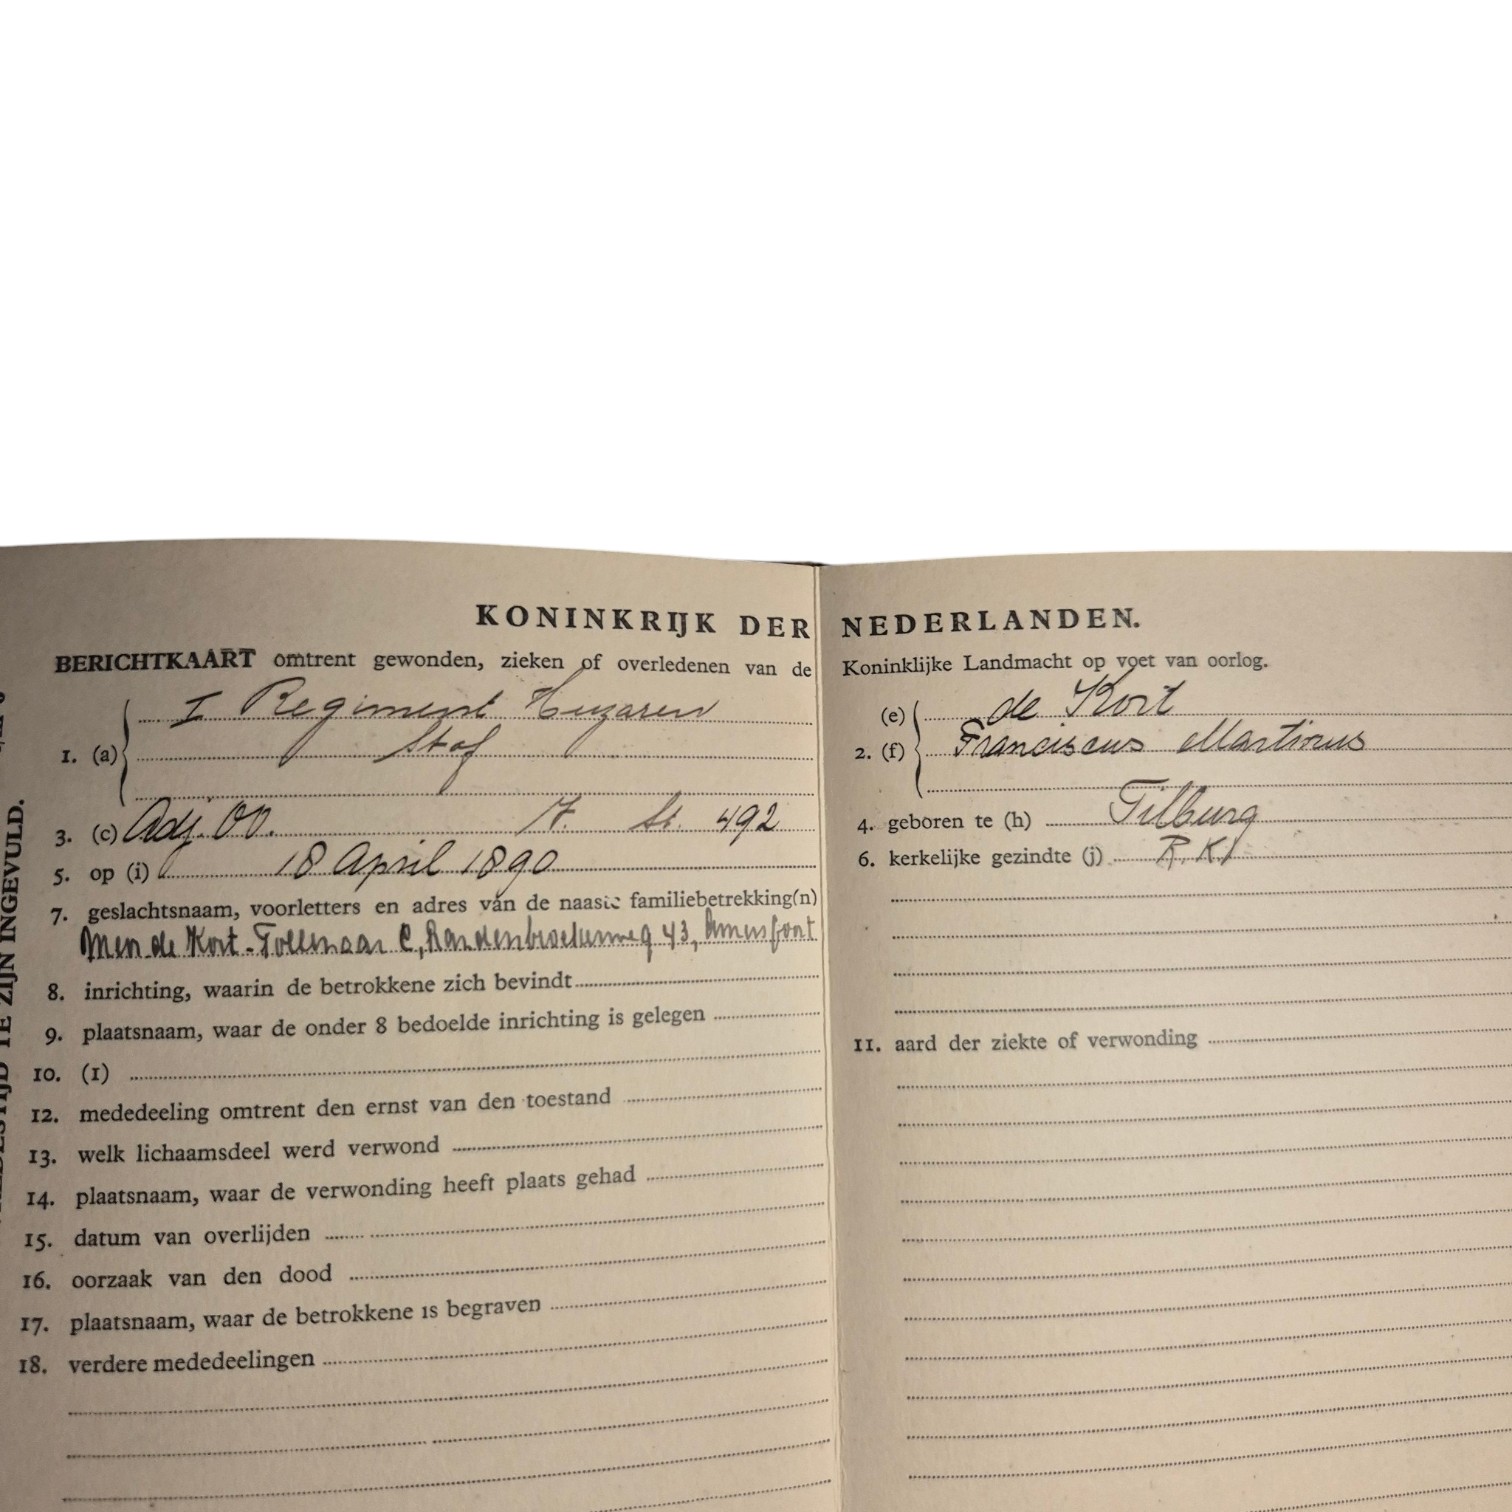 KONINKRIJK DER NEDERLANDEN.
BERICHTKAART omtrent gewonden, zieken of overledenen van de Koninklijke Landmacht op voet van oorlog.
1. (a) I Regiment Huzaren
Staf
(e) de Kort
2. (f) Franciscus Martinus
3. (c) Adj. OO. 17. St. 492
4. geboren te (h) Tilburg
5. op (i) 18 April 1890
6. kerkelijke gezindte (j) R.K.
7. geslachtsnaam, voorletters en adres van de naaste familiebetrekking(n)
de Kort - Tollenaar C, 43, Amersfoort
8. inrichting, waarin de betrokkene zich bevindt
9. plaatsnaam, waar de onder 8 bedoelde inrichting is gelegen
10. (1)
11. aard der ziekte of verwonding
12. mededeeling omtrent den ernst van den toestand
13. welk lichaamsdeel werd verwond
14. plaatsnaam, waar de verwonding heeft plaats gehad
15. datum van overlijden
16. oorzaak van den dood
17. plaatsnaam, waar de betrokkene is begraven
18. verdere mededeelingen
TE ZIJN INGEVULD.